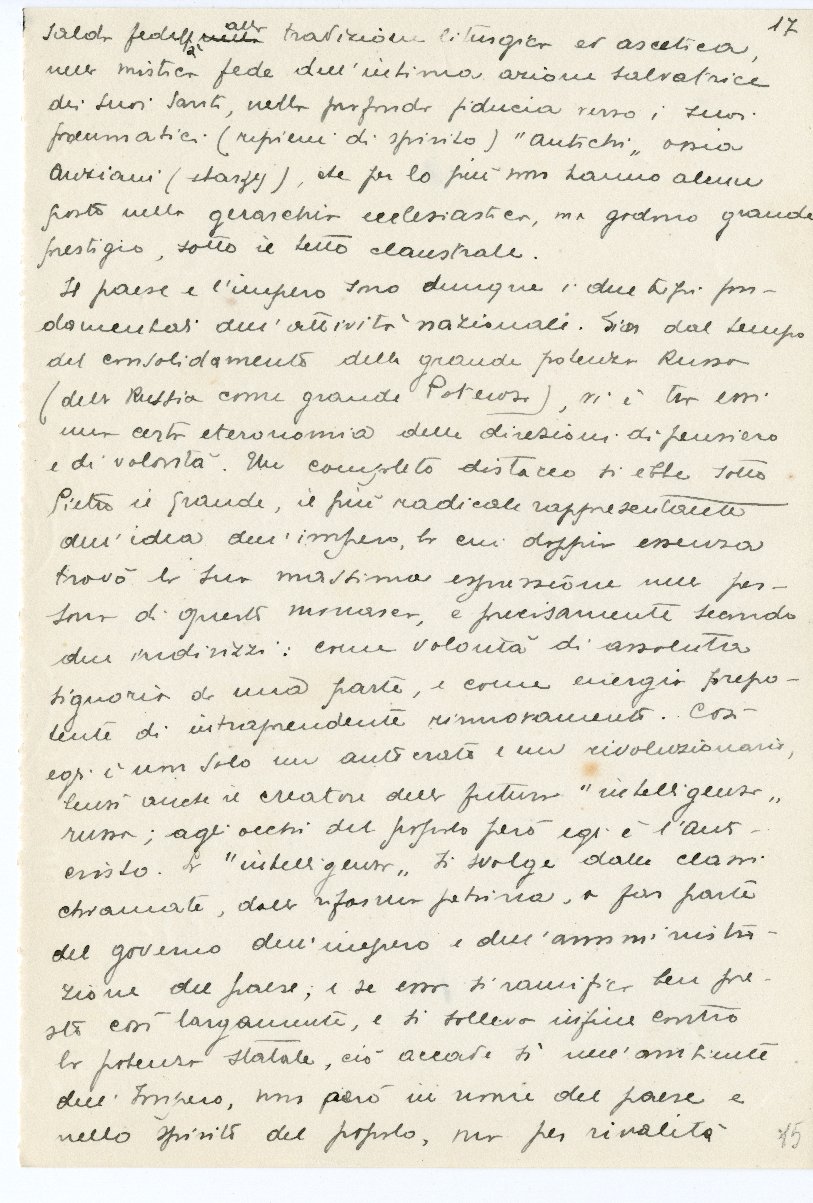 17
salda fedeltà alla tradizione liturgica ed ascetica,
nella mistica fede dell'intima azione salvatrice
dei suoi Santi, nella profonda fiducia verso i suoi
pneumatici (ripieni di spirito) "antichi„ ossia
Anziani (starzy), che per lo più non hanno alcun
posto nella gerarchia ecclesiastica, ma godono grande
prestigio, sotto il tetto claustrale.
Il paese e l'impero sono dunque i due tipi fon-
damentali dell'attività nazionale. Sin dal tempo
del consolidamento della grande potenza Russa
(della Russia come grande Potenza), vi è tra essi
una certa eteronomia delle direzioni di pensiero
e di volontà. Un completo distacco si ebbe sotto
Pietro il Grande, il più radicale rappresentante
dell'idea dell'impero, la cui doppia essenza
trovò la sua massima espressione nella per-
sona di questo monarca, e precisamente secondo
due indirizzi: come volontà di assoluta
signoria da una parte, e come energia prepo-
tente di intraprendente rinnovamento. Così
egli è non solo un autocrate e un rivoluzionario,
bensì anche il creatore della futura "intelligenza„
russa; agli occhi del popolo però egli è l'Anti-
cristo. La "intelligenza„ si svolge dalle classi
chiamate, dalla riforma petrina, a far parte
del governo dell'impero e dell'amministra-
zione del paese; e se essa si ramifica ben pre-
sto così largamente, e si solleva infine contro
la potenza statale, ciò accade sì nell'ambiente
dell'Impero, non però in nome del paese e
nello spirito del popolo, ma per rivalità
15